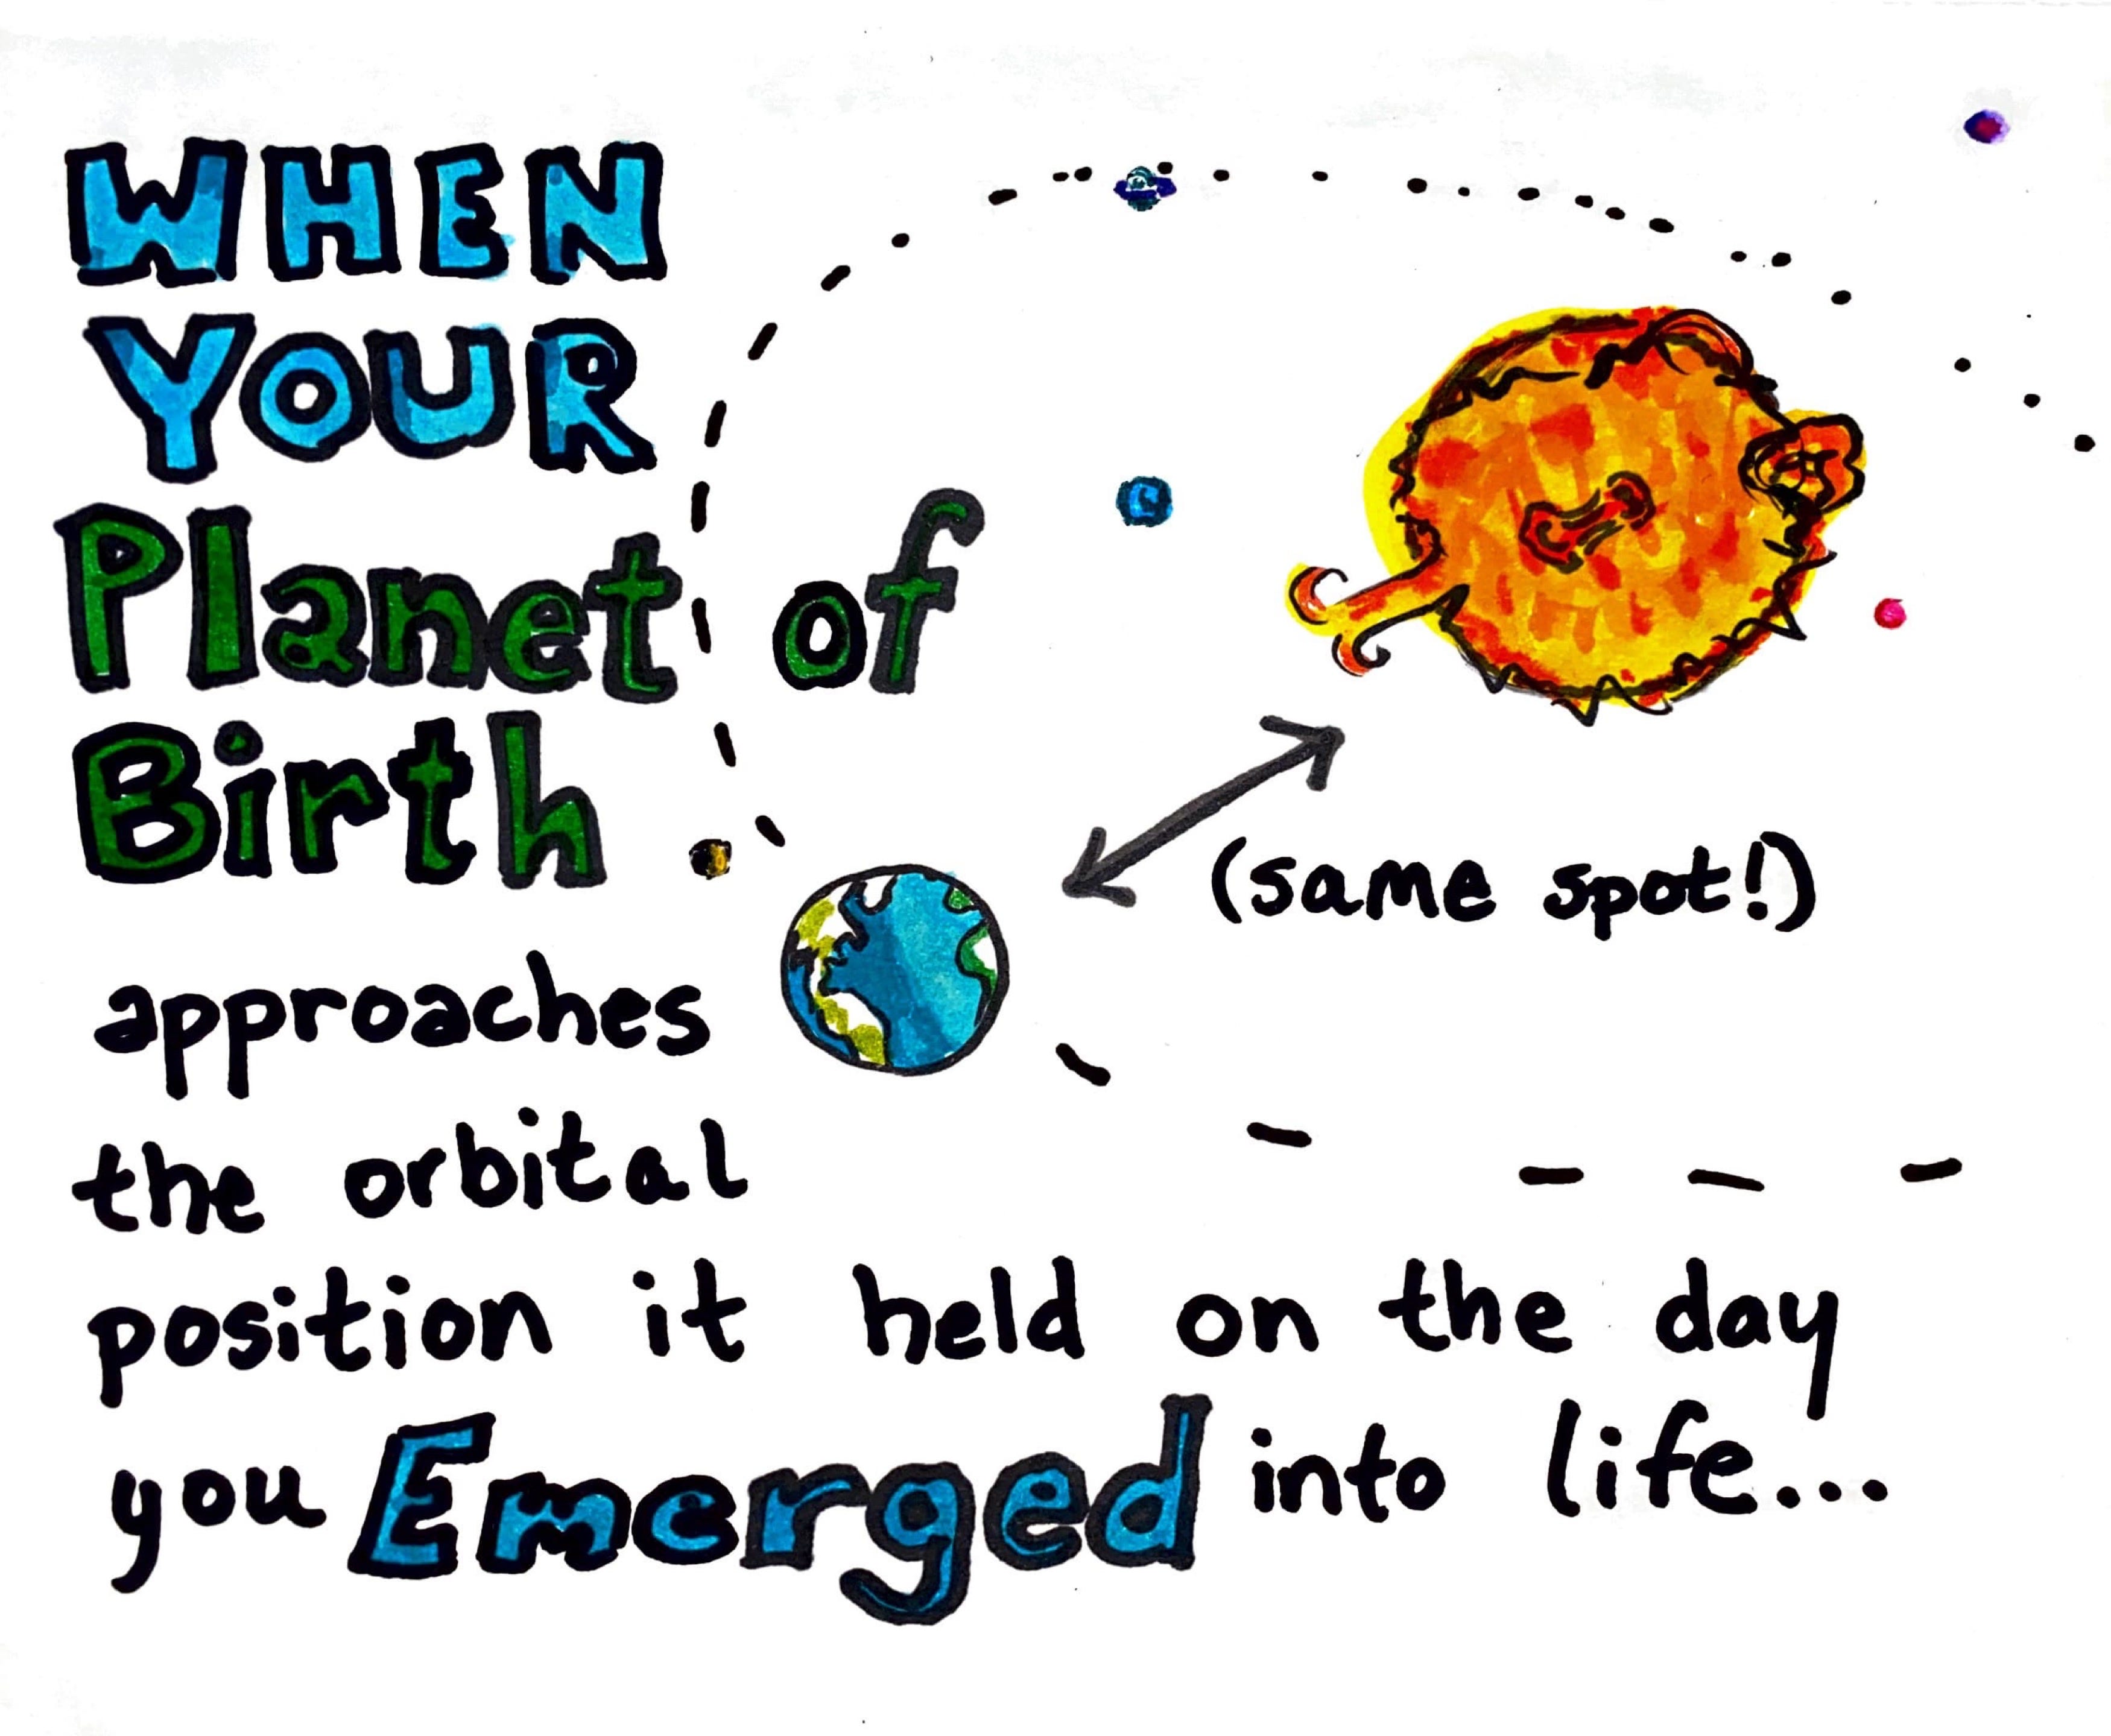 WHEN
YOUR
Planet of
Birth
(same spot!)
approaches
the orbital
position it held on the day
you Emerged into life...